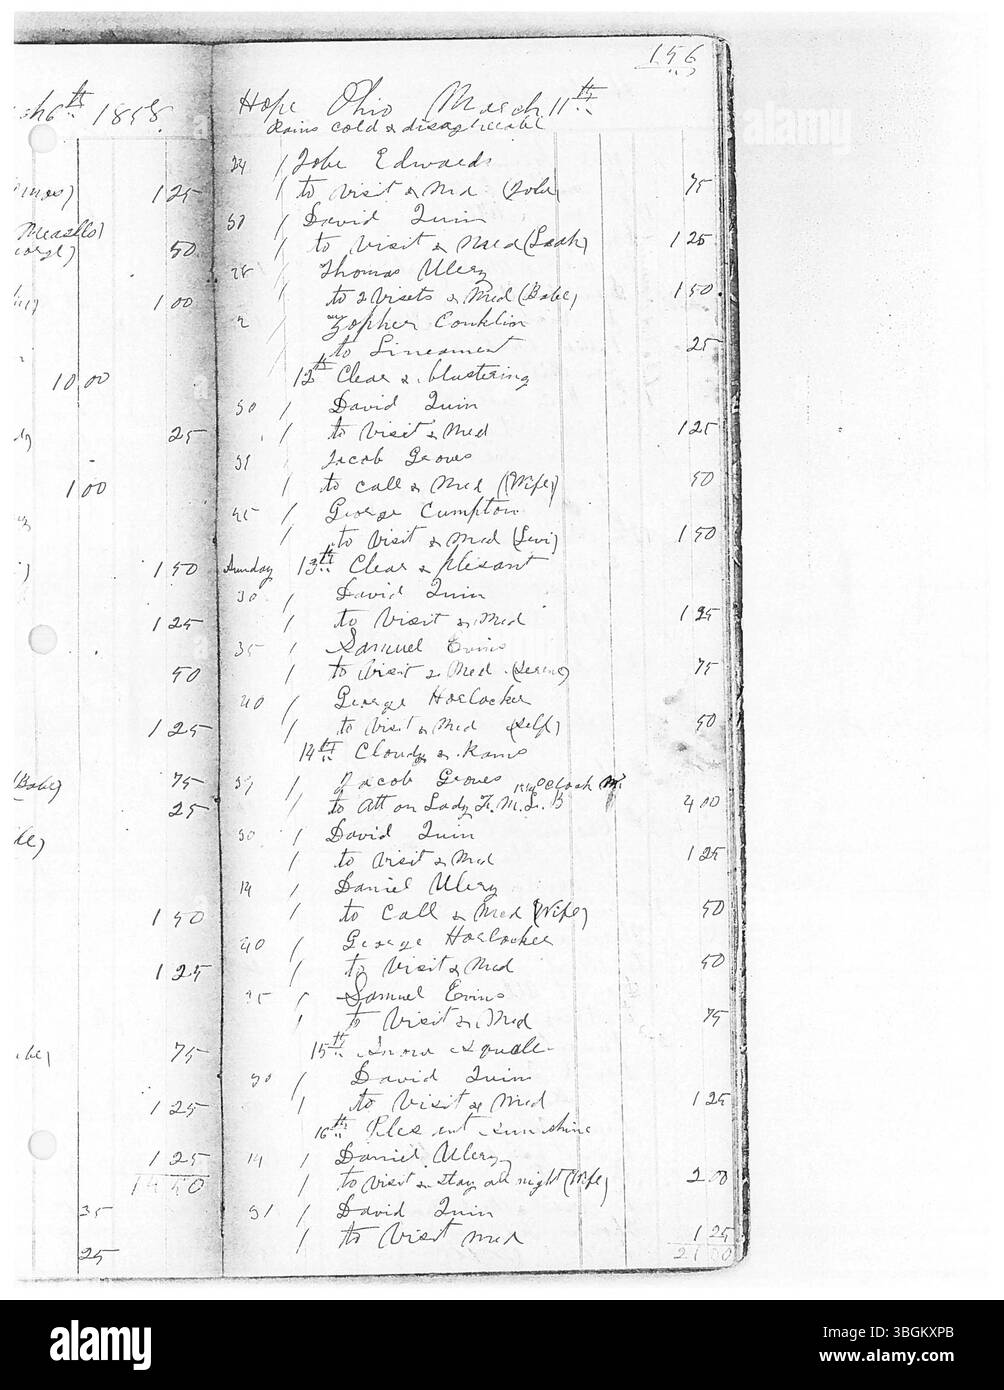 156
6th 1898.
125
Measells)
50
100
10 00
25
1 00
150
125
50
125
(Babe) 75
25
150
125
75
125
125
35
25
Hope Ohio March 11th
Rains cold & disagreeable
24 / Zobe Edwards
/ to visit & Med 75
30 / David Quin
/ to visit & Med 125
28 / Thomas Ulery
/ to 2 visets & Med (Babe) 150
2 / Zopher Conklin
/ to Lineament 25
12th Clear & blustering
30 / David Quin
/ to visit & Med 125
31 / Jacob Groves
/ to call & Med (Wife) 50
45 / George Cumpton
/ to visit & Med (Levi) 150
Sunday 13th Clear & plesant
30 / David Quin
/ to visit & Med 125
35 / Samuel Evins
/ to visit & Med 75
40 / George Horlocker
/ to visit & Med (self) 50
14th Cloudy & Rains
31 / Jacob Groves
/ to Att on Lady F. M. L. B 400
30 / David Quin
/ to visit & Med 125
14 / Daniel Ulery
/ to Call & Med (Wife) 50
40 / George Horlocker
/ to visit & Med 50
35 / Samuel Evins
/ to visit & Med 75
15th Snow squalls
30 / David Quin
/ to visit & Med 125
16th Plesent sunshine
14 / Daniel Ulery
/ to visit & stay all night (Wife) 200
31 / David Quin
/ to visit med 125
alamy
Image ID: 3BGKXPB
www.alamy.com